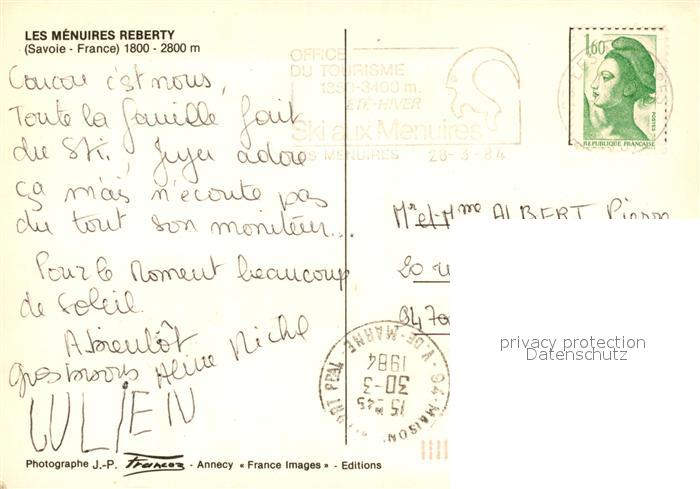 LES MÉNUIRES REBERTY
(Savoie - France) 1800 - 2800 m
Coucou c'est nous,
Toute la famille fait
du Ski, adore
ça mais n'écoute pas
du tout son moniteur...
Pour le Moment beaucoup
de Soleil.
A bientôt
Gros bisous Aline Michel
LULIEN
Photographe J.-P. Francoz - Annecy « France Images » - Editions
OFFICE
DU TOURISME
1850-3400 m.
ÉTÉ-HIVER
Ski aux Menuires
LES MENUIRES 28-3-84
1,60
POSTES
REPUBLIQUE FRANÇAISE
Mr et Mme ALBERT Pierre
20
9470
94-MAISONS-ALFORT PPAL
V.-DE-MARNE
15 H45
30-3
1984
privacy protection
Datenschutz